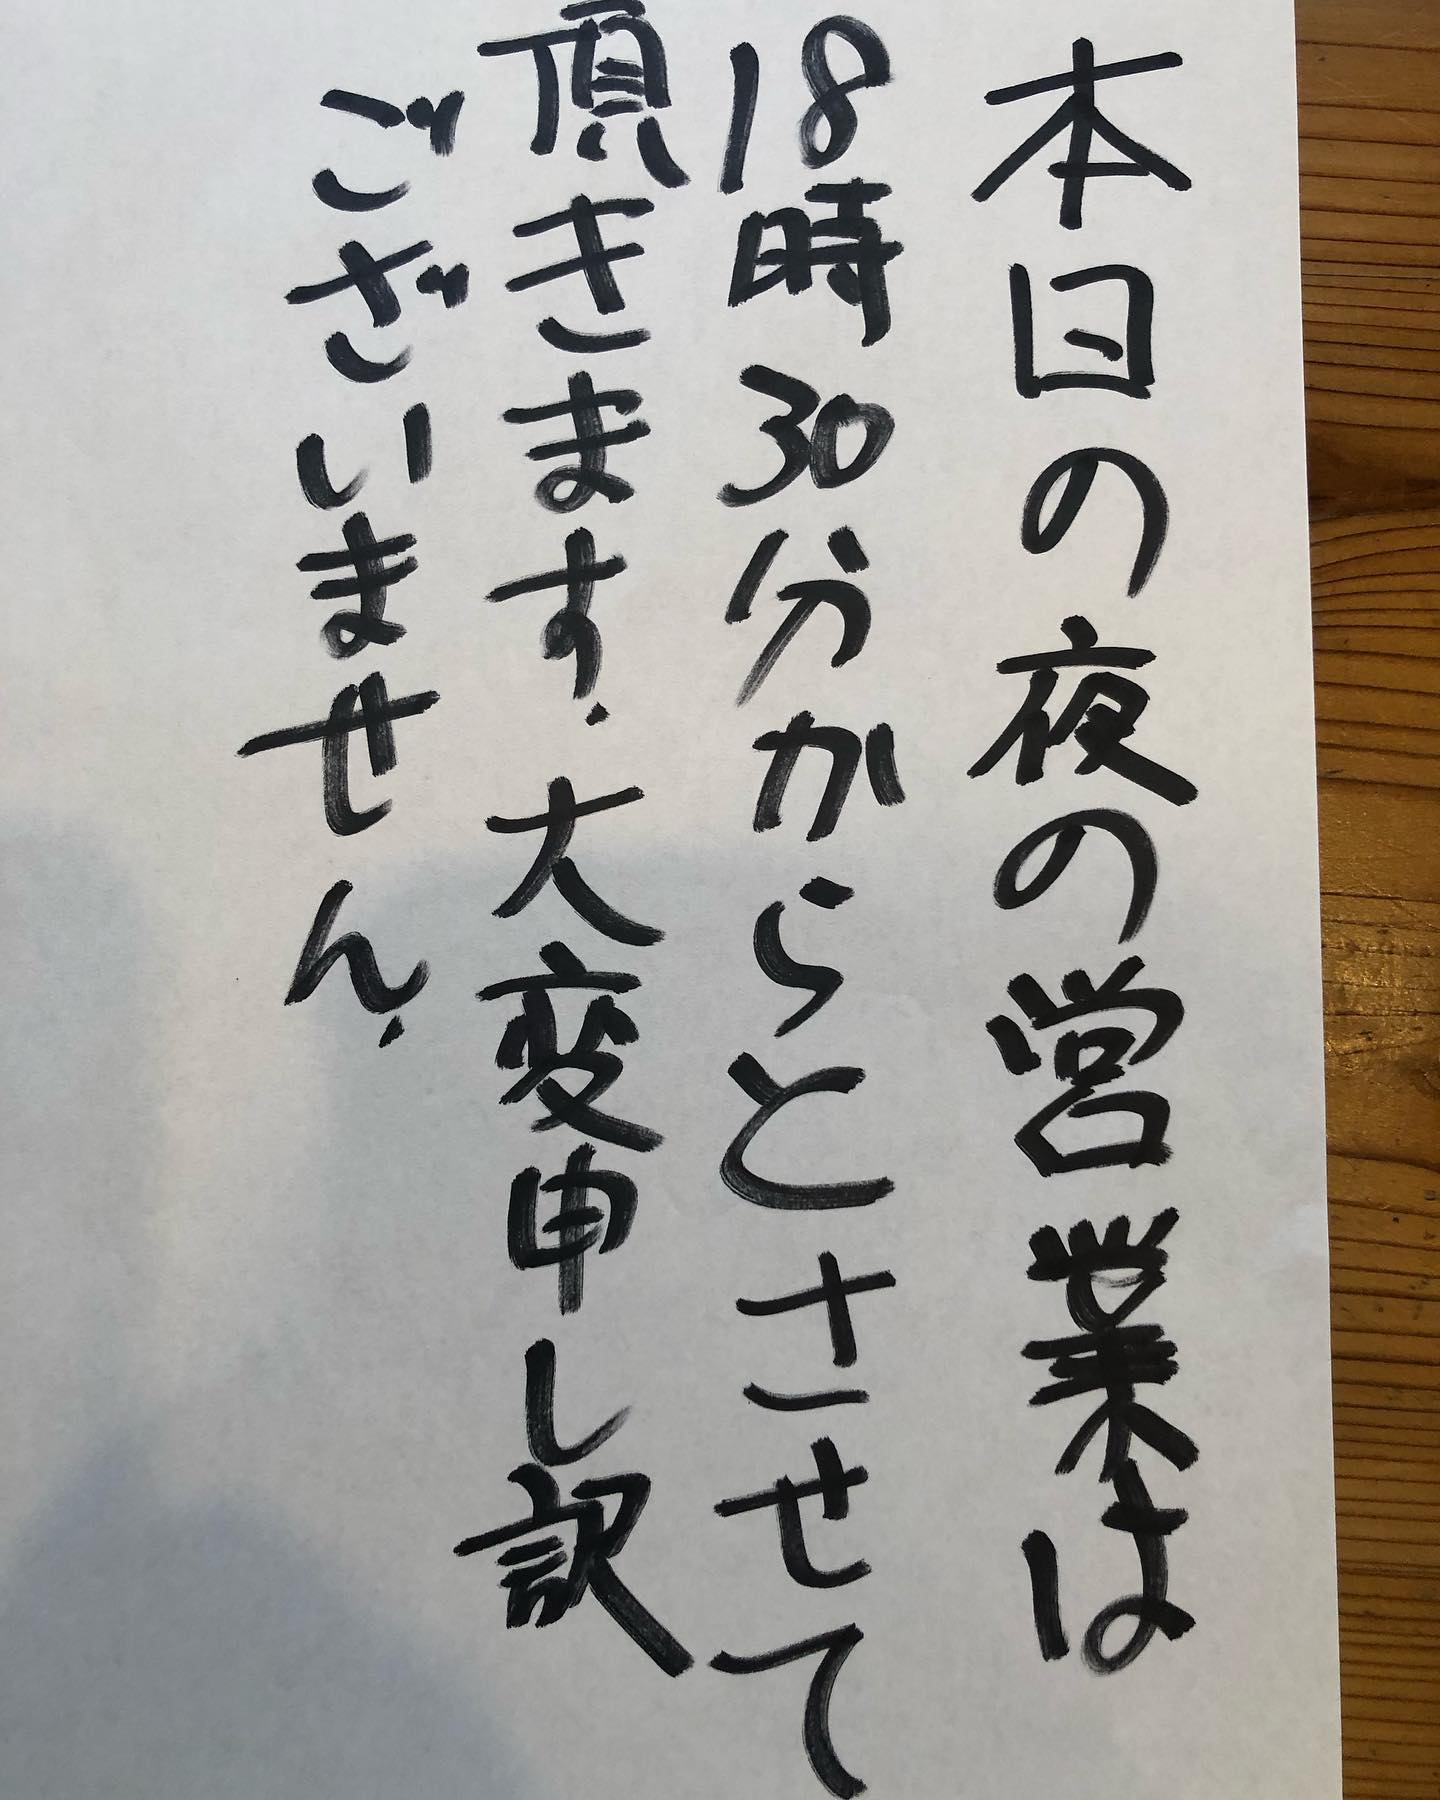 本日の夜の営業は
18時30分からとさせて
頂きます.大変申し訳
ございません.